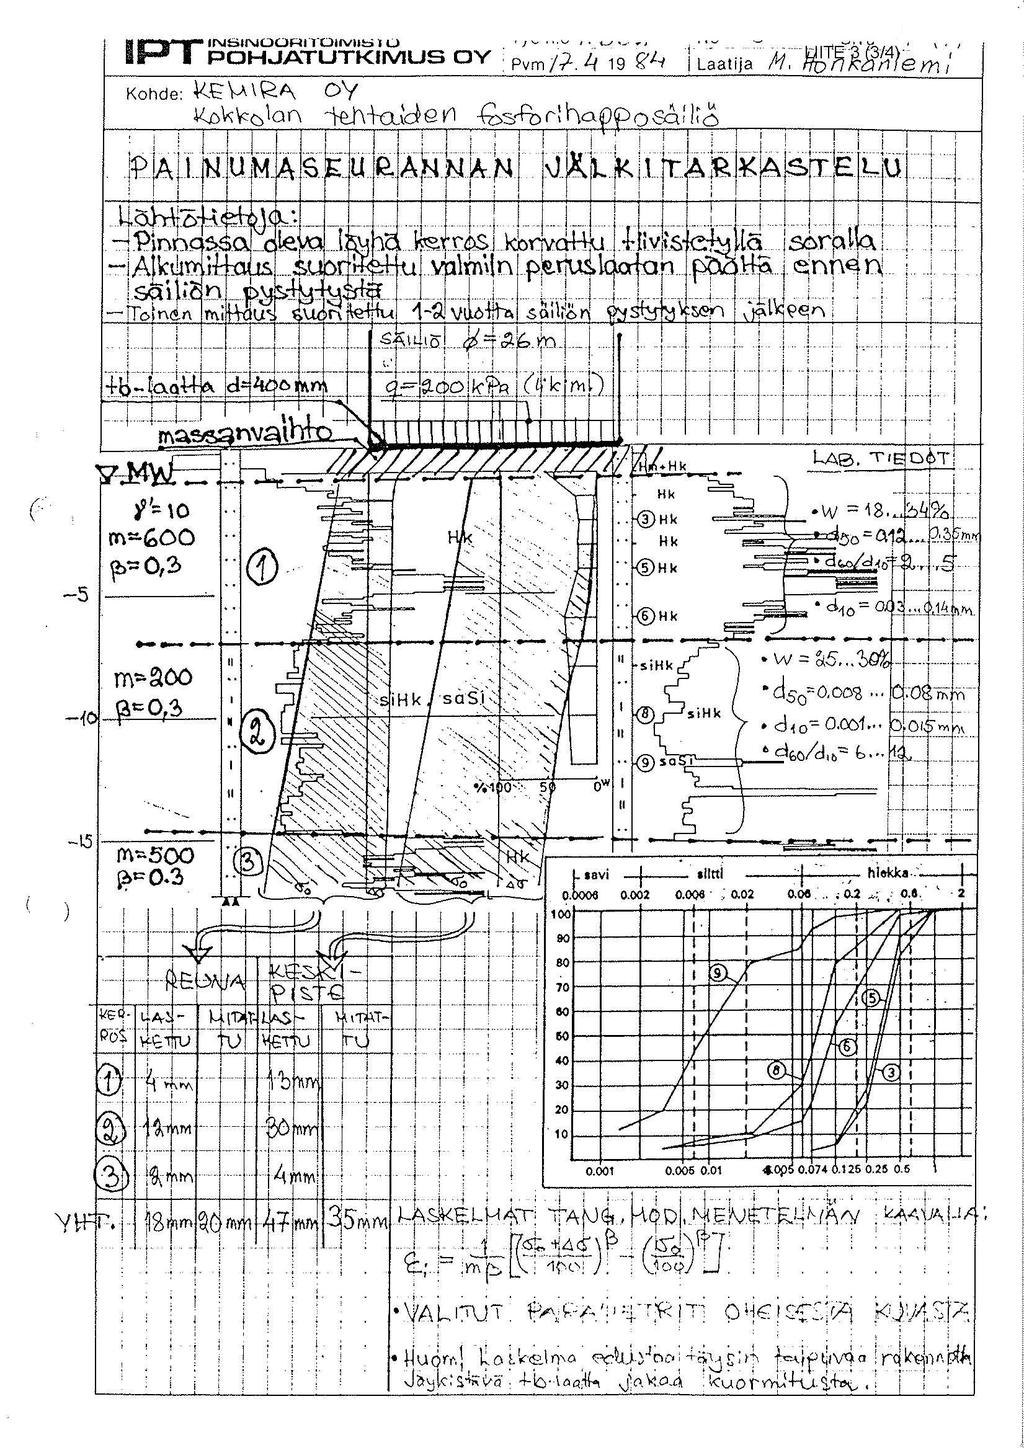 IPT INSINÖÖRITOIMISTO
POHJATUTKIMUS OY
Pvm 17.4 1984
Laatija M. Honkaniemi
LIITE 3 (3/4)
Kohde: KEMIRA OY
Kokkolan tehtaiden fosforihapposäiliö
PAINUMASEURANNAN JÄLKITARKASTELU
Lähtötietoja:
- Pinnassa oleva löyhä kerros korvattu tiivistetyllä soralla
- Alkumittaus suoritettu valmiin peruslaatan päältä ennen
säiliön pystytystä
- Toinen mittaus suoritettu 1-2 vuotta säiliön pystytyksen jälkeen
SÄILIÖ Ø=26 m
tb-laatta d=400mm
q=200 kPa
massanvaihto
LAB. TIEDOT
MW
Hm+Hk
Hk
γ'=10
m=600
β=0,3
1
Hk
3 Hk
Hk
5 Hk
6 Hk
• W = 18...34%
• d50 = 0.12...0.35mm
• d60/d10 = 2...5
• d10 = 0.03...0.14mm
-5
m=200
β=0,3
2
siHk, saSi
siHk
8 siHk
9 saSi
• W = 25...30%
• d50=0.008...0.08mm
• d10=0.001...0.015mm
• d60/d10= 6...12
-10
% 100 50 0 w
-15
m=500
β=0.3
3
Hk
σo Δσ σo Δσ
savi siltti hiekka
0.0006 0.002 0.006 0.02 0.06 0.2 0.6 2
100
90
80
70
60
50
40
30
20
10
9
5
6
8
3
0.001 0.005 0.01 0.074 0.125 0.25 0.5 1
REUNA KESKI-
PISTE
KER-
ROS LAS-
KETTU MITAT-
TU LAS-
KETTU MITAT-
TU
1 4 mm 13mm
2 12mm 30mm
3 2mm 4mm
YHT. 18mm 20mm 47mm 35mm
LASKELMAT TANG.MOD.MENETELMÄN KAAVALLA:
εi = 1/mβ [(σo+Δσ/100)^β - (σo/100)^β]
• VALITUT PARAMETRIT OHEISESTA KUVASTA
• Huom! Laskelma edustaa täysin taipuvaa rakennetta
Jäykistävä tb-laatta jakaa kuormitusta.